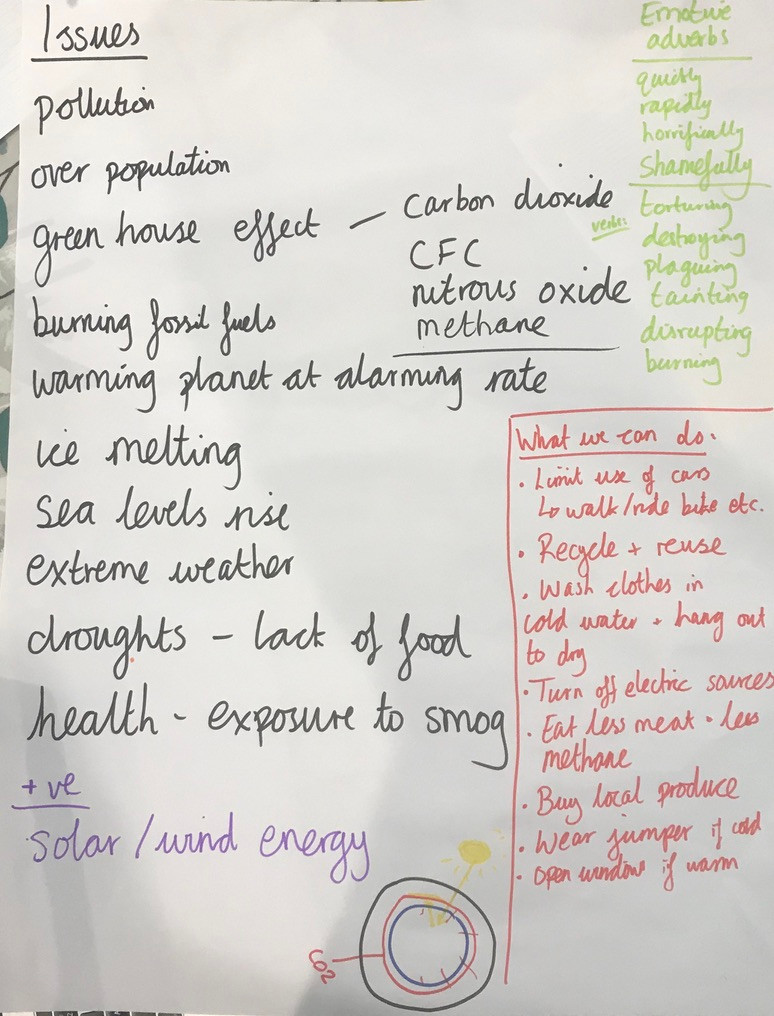 Issues
pollution
over population
green house effect – Carbon dioxide
CFC
nitrous oxide
methane
burning fossil fuels
warming planet at alarming rate
ice melting
sea levels rise
extreme weather
droughts – lack of food
health - exposure to smog
+ve
solar / wind energy
CO2
Emotive
adverbs
quickly
rapidly
horrifically
Shamefully
verbs:
torturing
destroying
plaguing
tainting
disrupting
burning
What we can do.
• Limit use of cars
↳ walk/ride bike etc.
• Recycle + reuse
• Wash clothes in
cold water + hang out
to dry
• Turn off electric sources
• Eat less meat • less
methane
• Buy local produce
• Wear jumper if cold
• open window if warm